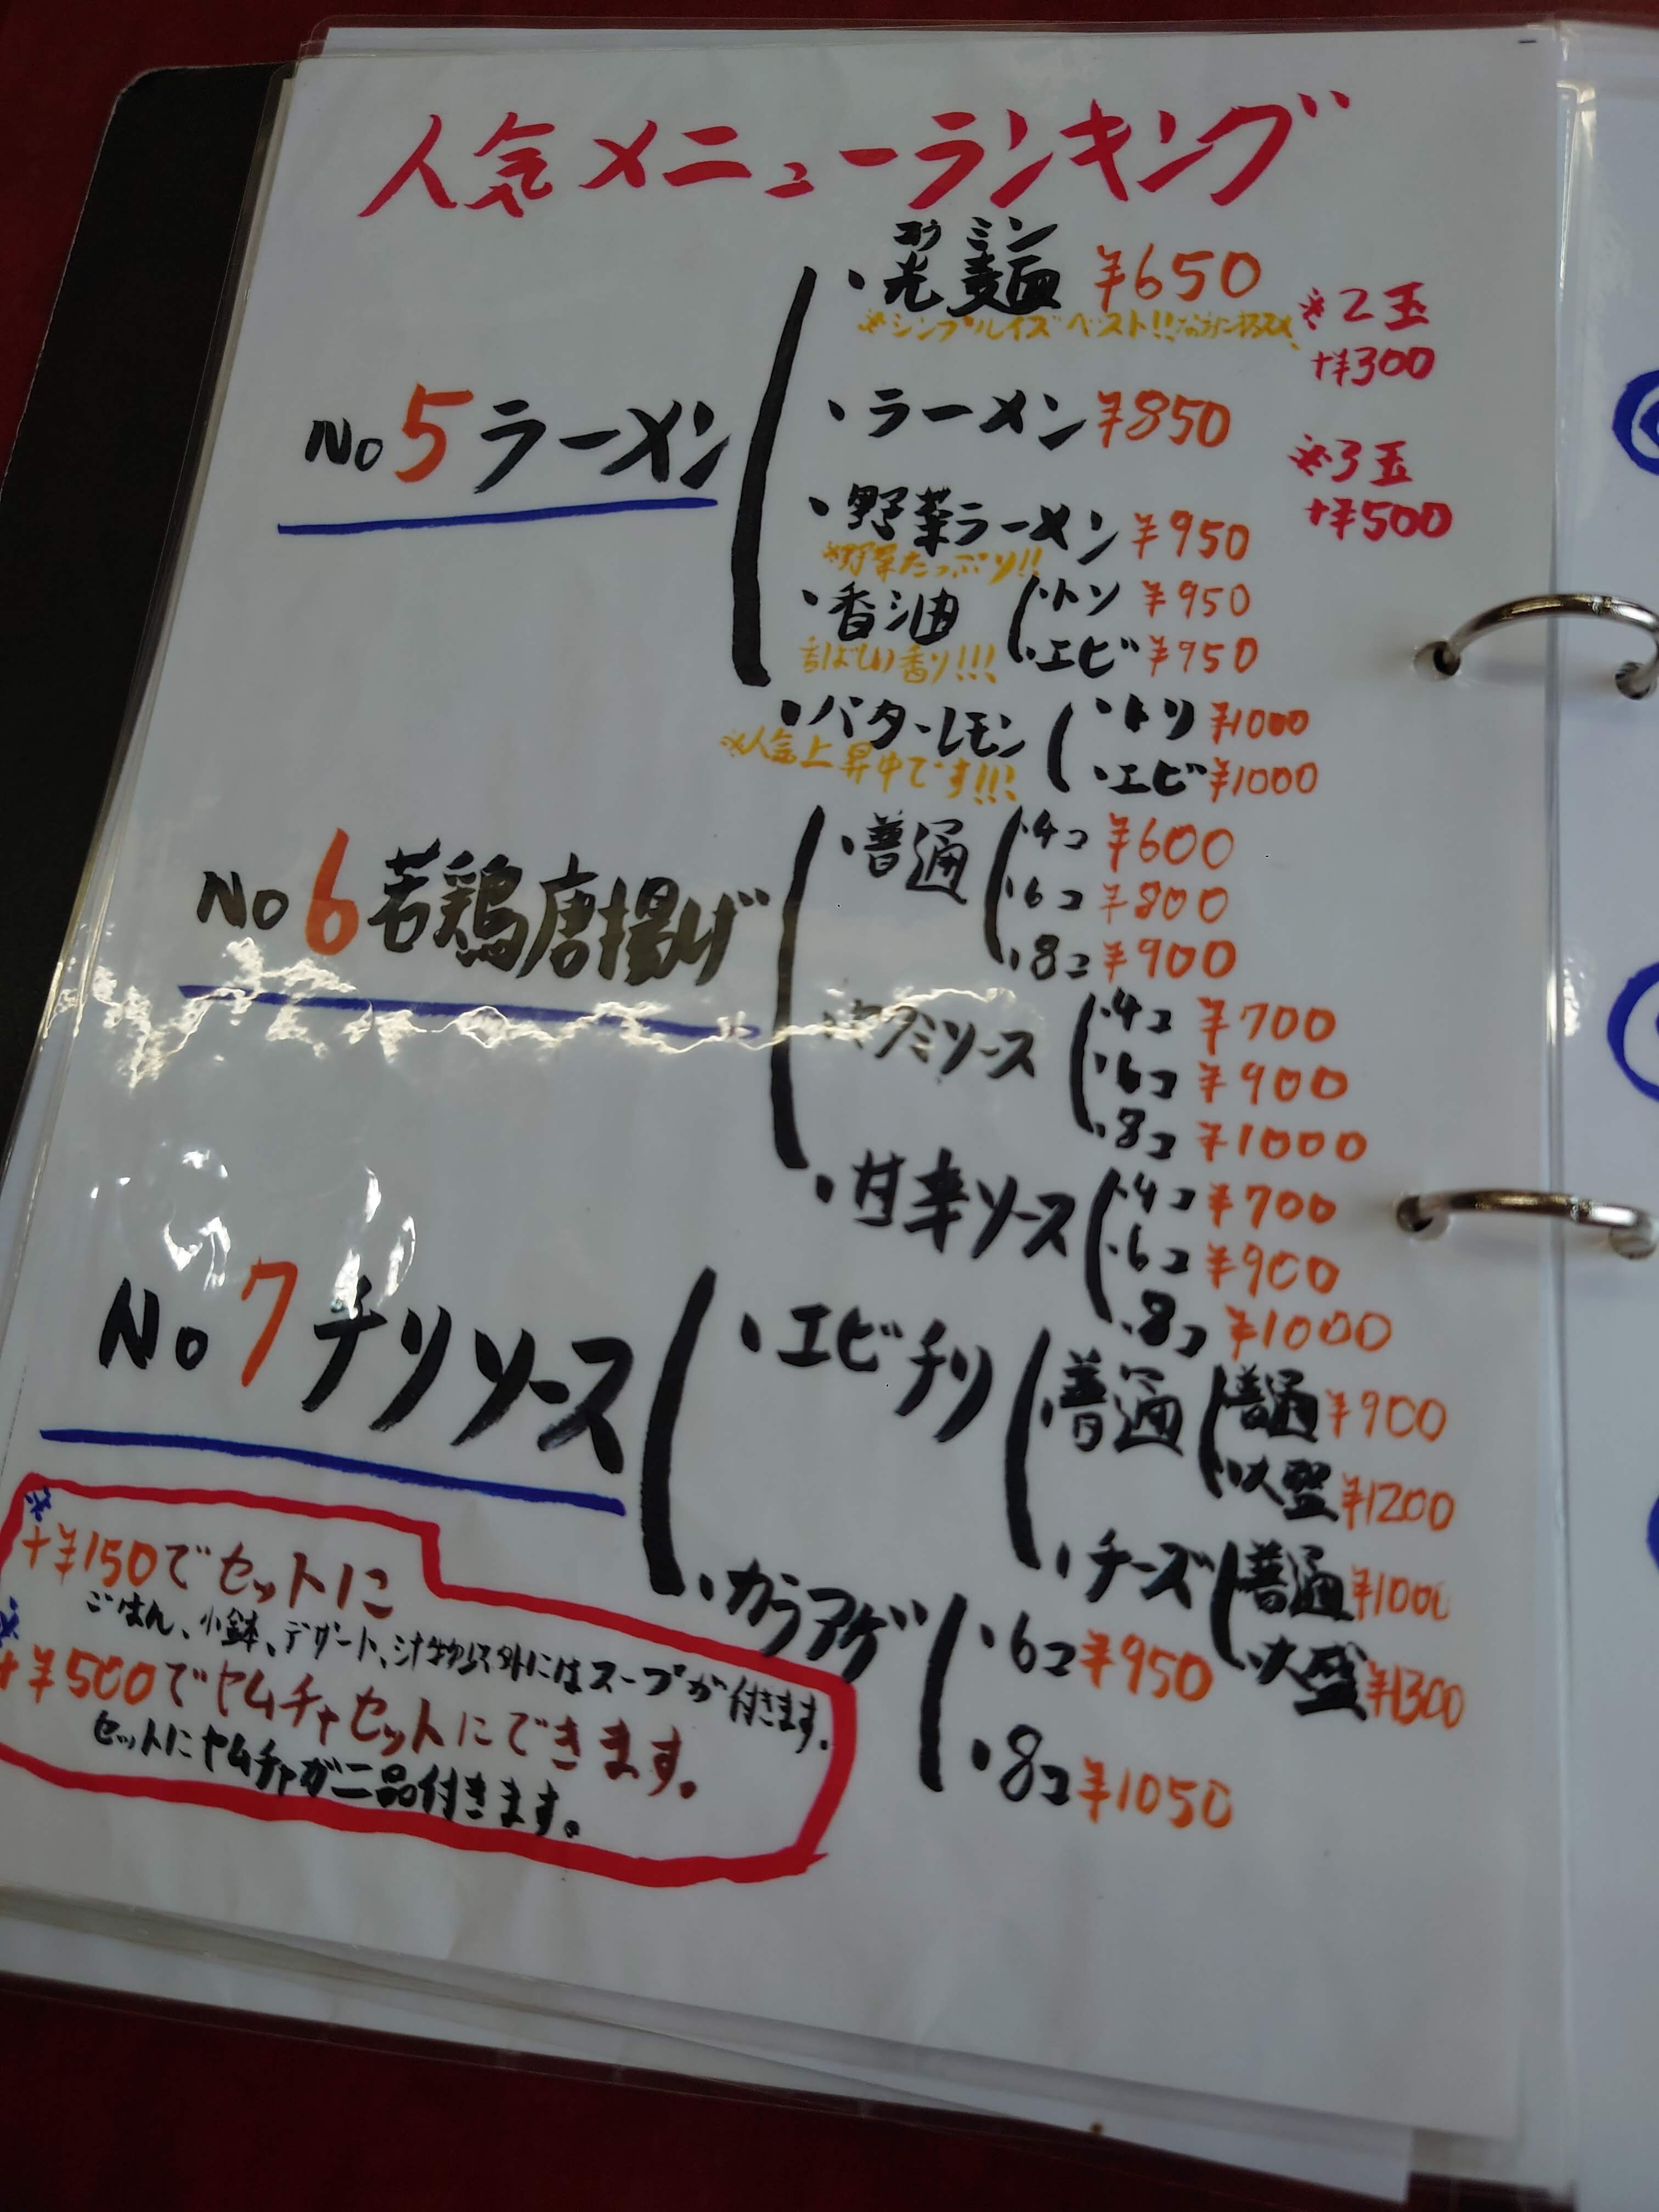 人気メニューランキング
No5 ラーメン
コウ ミン
・光麺 ¥650
※シンプルイズベスト!!
※2玉
+¥300
・ラーメン ¥850
※3玉
+¥500
・野菜ラーメン ¥950
※野菜たっぷり!!
・香油
・トリ ¥950
・エビ ¥950
香ばしい香り!!!
・バターレモン
・トリ ¥1000
・エビ ¥1000
※人気上昇中です!!!
No6 若鶏唐揚げ
・普通
・4コ ¥600
・6コ ¥800
・8コ ¥900
・ヤクミソース
・4コ ¥700
・6コ ¥900
・8コ ¥1000
・甘辛ソース
・4コ ¥700
・6コ ¥900
・8コ ¥1000
No7 チリソース
・エビチリ
・普通
・普通 ¥900
・大盛 ¥1200
・チーズ
・普通 ¥1000
・大盛 ¥1300
・カラアゲ
・6コ ¥950
・8コ ¥1050
※
+¥150でセットに
ごはん、小鉢、デザート、汁物以外にはスープが付きます。
※
+¥500でヤムチャセットにできます。
セットにヤムチャが二品付きます。